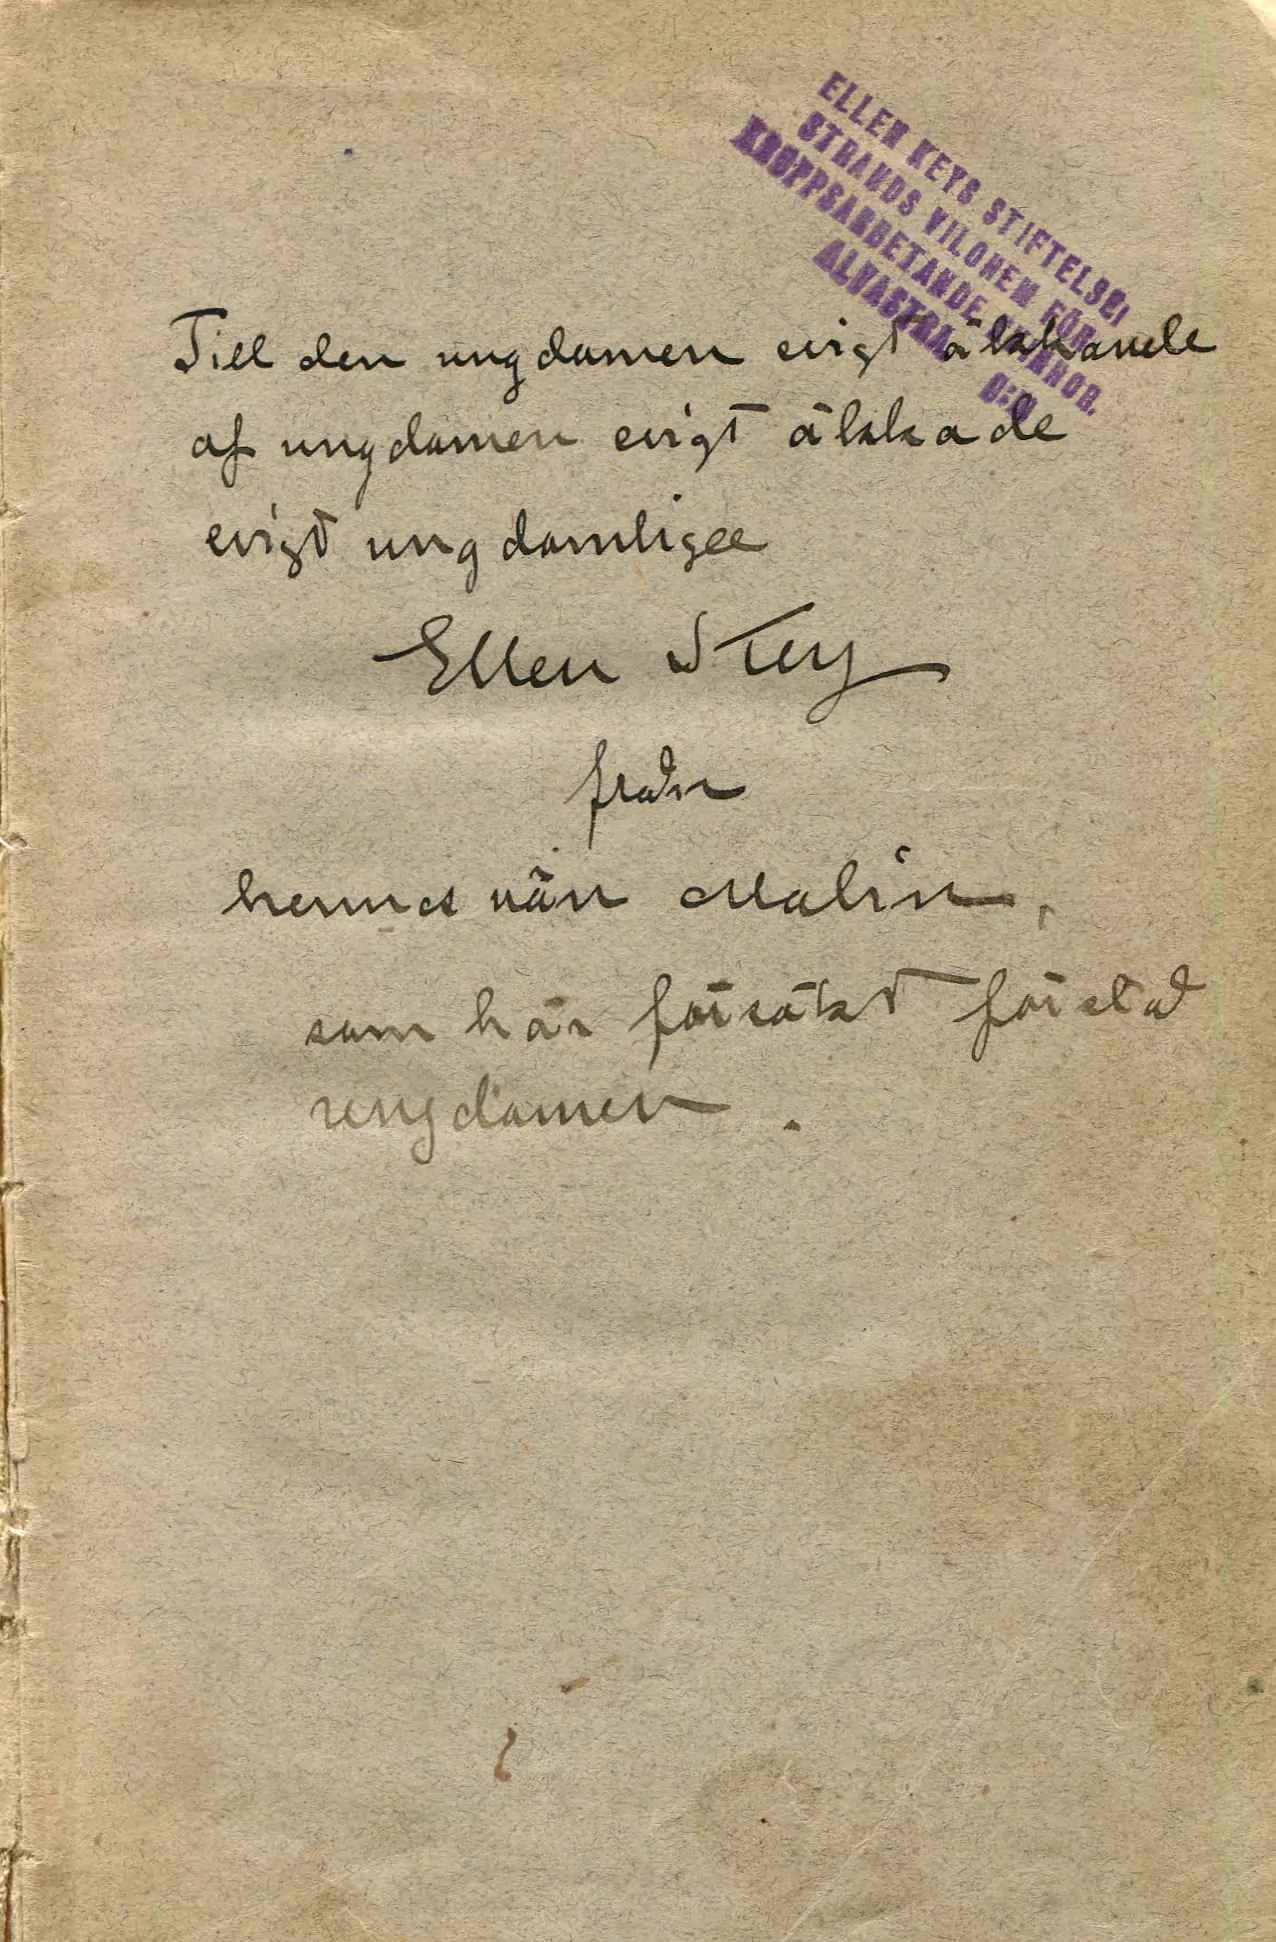 ELLEN KEYS STIFTELSE:
STRANDS VILOHEM FÖR
KROPPSARBETANDE KVINNOR.
ALVASTRA
Till den ungdomen evigt älskande
af ungdomen evigt älskade
evigt ungdomliga
Ellen Key
från
hennes vän Malin,
som här försökt förstå
ungdomen.